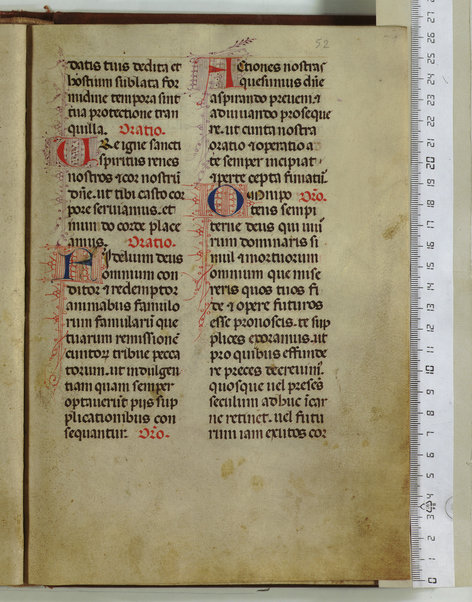 52
datis tuis dedita et
hostium sublata for
midine tempora sint
tua protectione tran
quilla. Oratio.
URe igne sancti
spiritus renes
nostros ⁊ cor nostrũ
dñe. ut tibi casto cor
pore seruiamus. et
mundo corde place
amus. Oratio.
Fidelium deus
omnium con
ditor ⁊ redemptor
animabus famulo
rum famularũ que
tuarum remissionẽ
cunctoꝝ tribue pecca
torum. ut indulgen
tiam quam semper
optauerũt pijs sup
plicationibus con
sequantur. Orõ.
ACtiones nostras
quesumus dñe
aspirando preueni. ⁊
adiuuando proseque
re. ut cuncta nostra
oratio ⁊ operatio a
te semper incipiat
⁊ per te cepta finiatũ
Omnipo Orõ.
tens sempi
terne deus qui uiuo
rum dominaris si
mul ⁊ mortuorum
omnium que mise
reris quos tuos fi
de ⁊ opere futuros
esse pronoscis. te sup
plices exoramus. ut
pro quibus effunde
re preces decreuim.
quosque uel presẽs
seculum adhuc ĩcar
ne retinet. uel futu
rum iam exutos cor